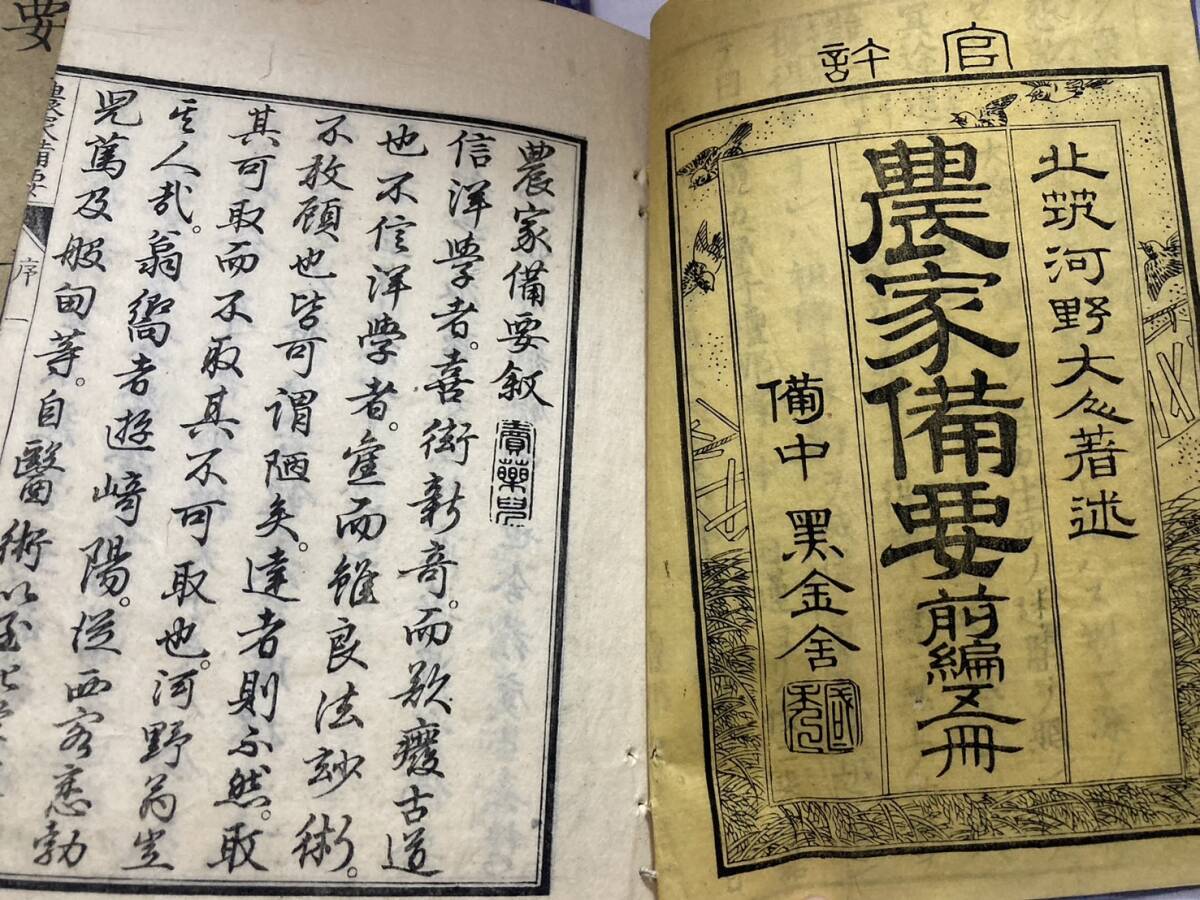 官許
北筑河野大著述
農家備要前編五冊
備中 黒金舍
農家備要叙 賣藥兒
信洋學者。喜衒新奇。而欲癈古道
也不信洋學者。壹而雖良法玅術。
不敢顧也皆可謂陋矣。達者則不然。取
其可取而不取其不可取也。河野翁豈
其人哉。翁嚮者遊﨑陽。從西客悉勃
児篤及般甸等。自醫術以至
農家備要 序 一
要